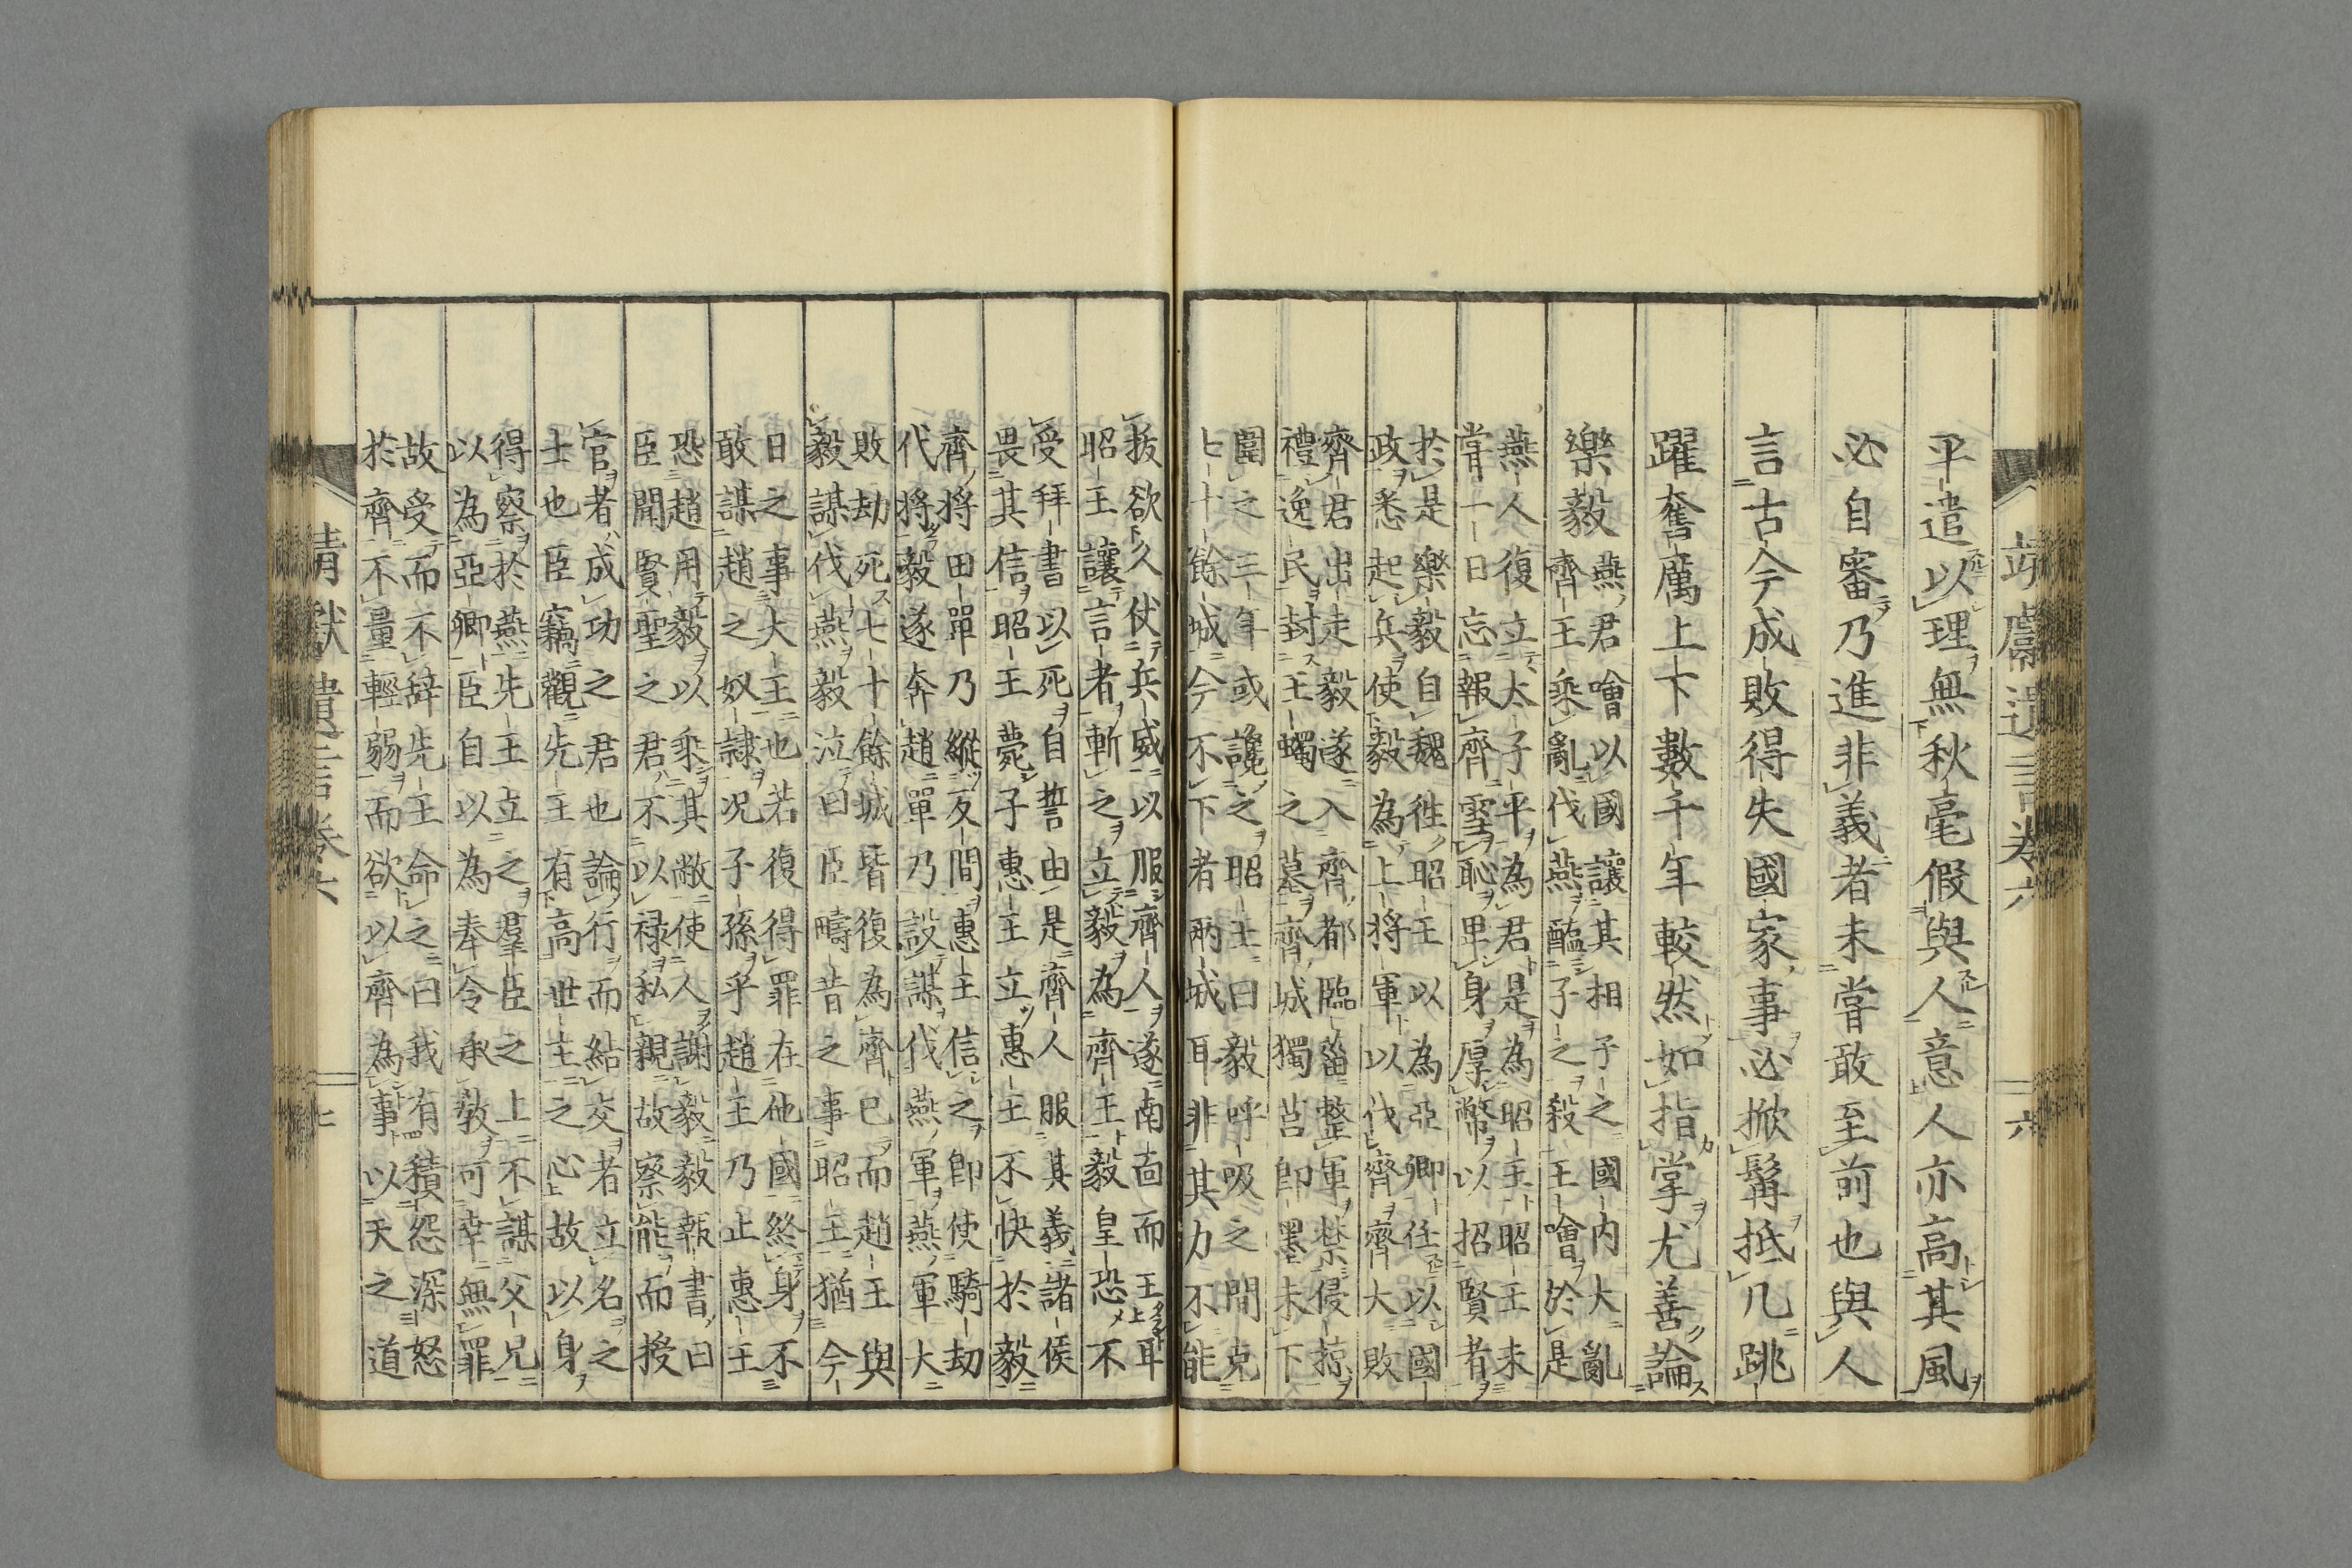 平遣以理無秋毫假與人意人亦高其風
必自審乃進非義者未嘗敢至前也與人
言古今成敗得失國家事必掀髯抵几跳
躍奮厲上下數千年較然如指掌尤善論
樂毅
燕君噲以國讓其相子之國內大亂
齊王乘亂伐燕醢子之殺王噲於是
燕人復立太子平為君是為昭王昭王未
嘗一日忘報齊雪恥卑身厚幣以招賢者
於是樂毅自魏徃昭王以為亞卿任以國
政悉起兵使毅為上將軍以伐齊齊大敗
齊君出走毅遂入齊都臨菑整軍禁侵掠
禮逸民封王蠋之墓齊城獨莒即墨未下
圍之三年或讒之昭王曰毅呼吸之間克
七十餘城今不下者兩城耳非其力不能
拔欲久仗兵威以服齊人遂南面而王耳
昭王讓言者斬之立毅為齊王毅皇恐不
受拜書以死自誓由是齊人服其義諸侯
畏其信昭王薨子惠王立惠王不快於毅
齊將田單乃縱反間惠王信之即使騎劫
代將毅遂奔趙單乃設謀伐燕軍燕軍大
敗劫死七十餘城皆復為齊已而趙王與
毅謀伐燕毅泣曰臣疇昔之事昭王猶今
日之事大王也若復得罪在他國終身不
敢謀趙之奴隸況子孫乎趙王乃止惠王
恐趙用毅以乘其敝使人謝毅毅報書曰
臣聞賢聖之君不以祿私親故察能而授
官者成功之君也論行而結交者立名之
士也臣竊觀先王有高世主之心故以身
得察於燕先王立之羣臣之上不謀父兄
以為亞卿臣自以為奉令承教可幸無罪
故受而不辭先王命之曰我有積怨深怒
於齊不量輕弱而欲以齊為事以天之道
靖獻遺言卷六
六
靖獻遺言卷六
七